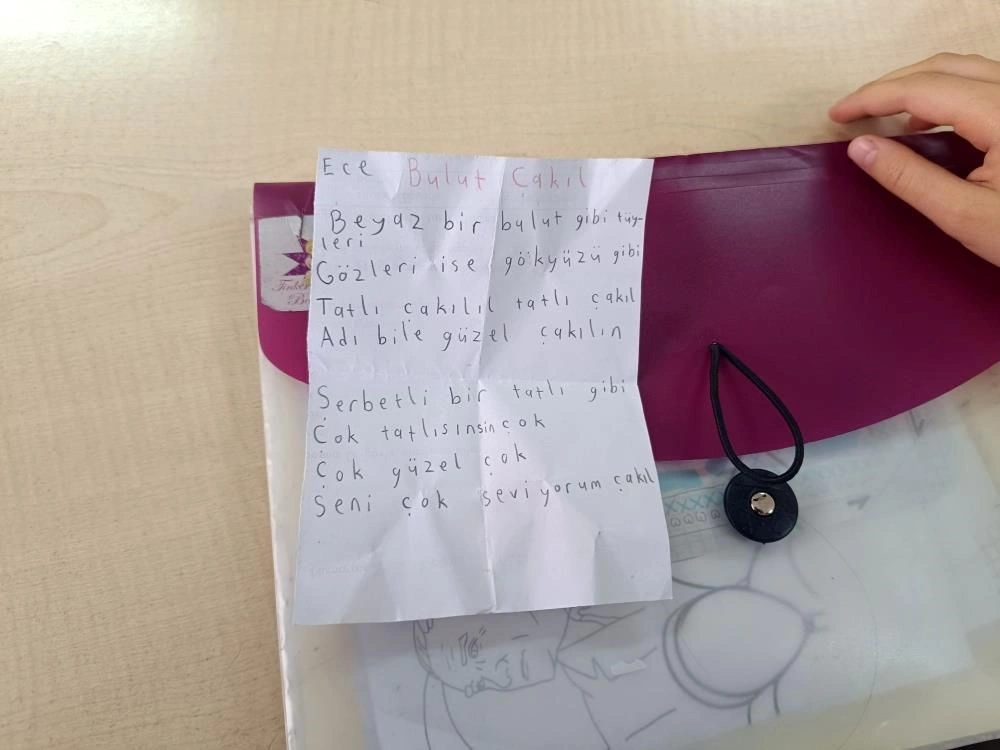 Ece Bulut Çakıl
Beyaz bir bulut gibi tüy-
leri
Gözleri ise gökyüzü gibi
Tatlı çakılıl tatlı çakıl
Adı bile güzel çakılın
Şerbetli bir tatlı gibi
Çok tatlısınsin çok
Çok güzel çok
Seni çok seviyorum çakıl